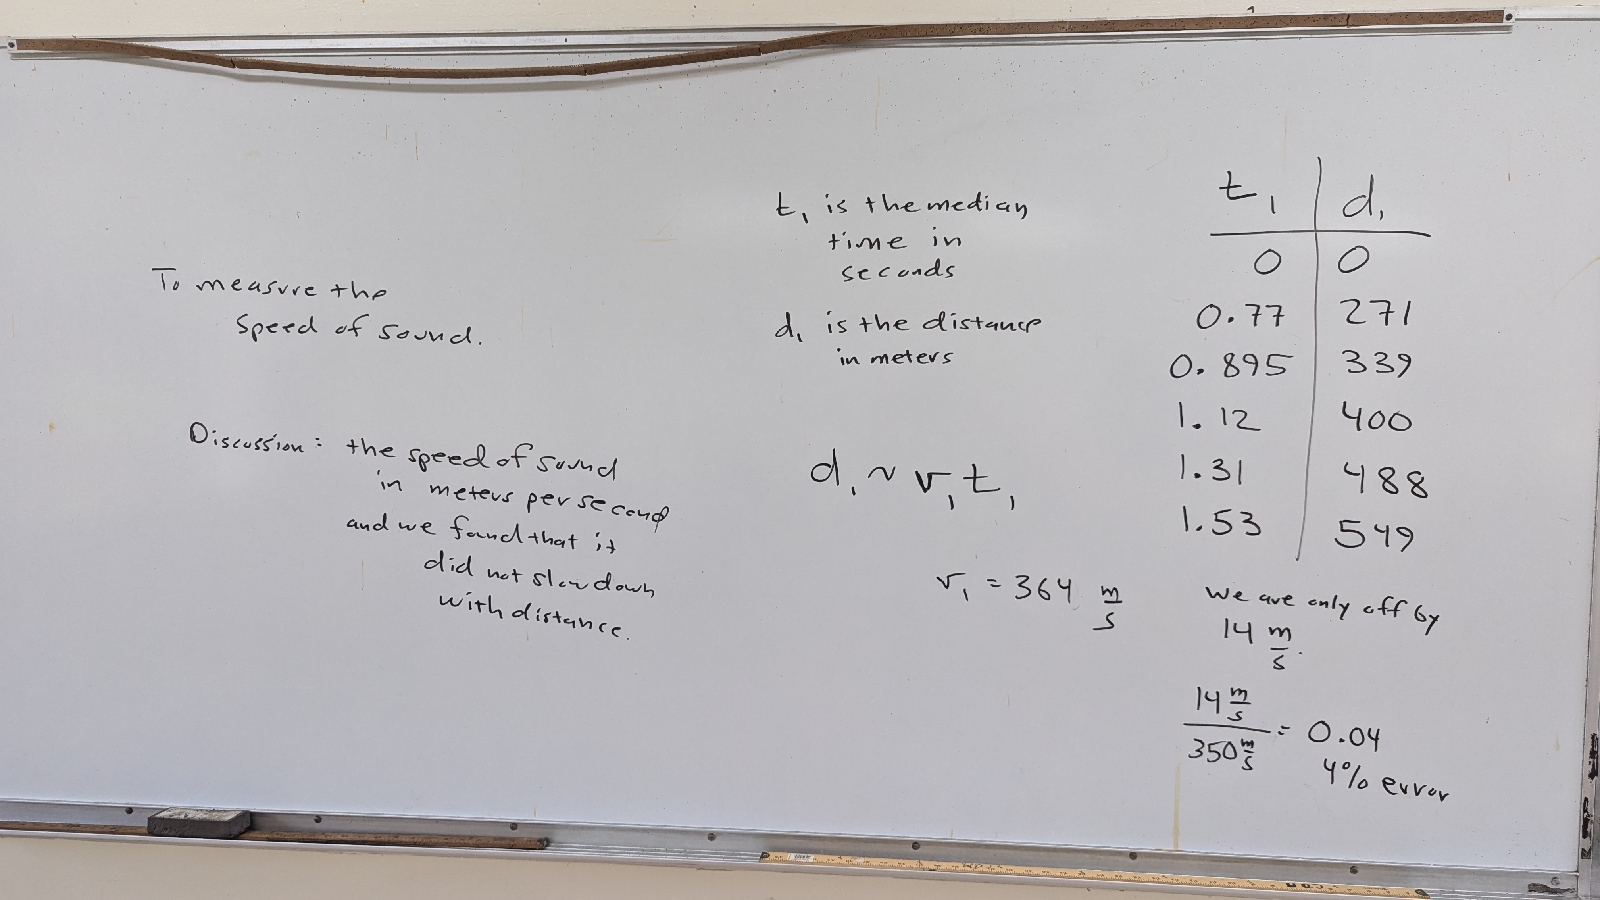 To measure the
speed of sound.
Discussion: the speed of sound
in meters per second
and we found that it
did not slow down
with distance.
t₁ is the median
time in
seconds
d₁ is the distance
in meters
d₁ ~ v₁t₁
v₁ = 364 m/s
t₁ | d₁
0 | 0
0.77 | 271
0.895 | 339
1.12 | 400
1.31 | 488
1.53 | 549
we are only off by
14 m/s.
14 m/s / 350 m/s = 0.04
4% error